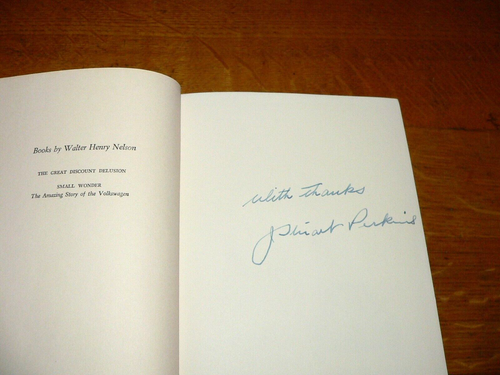 Books by Walter Henry Nelson
THE GREAT DISCOUNT DELUSION
SMALL WONDER
The Amazing Story of the Volkswagen
With thanks
J Stuart Perkins